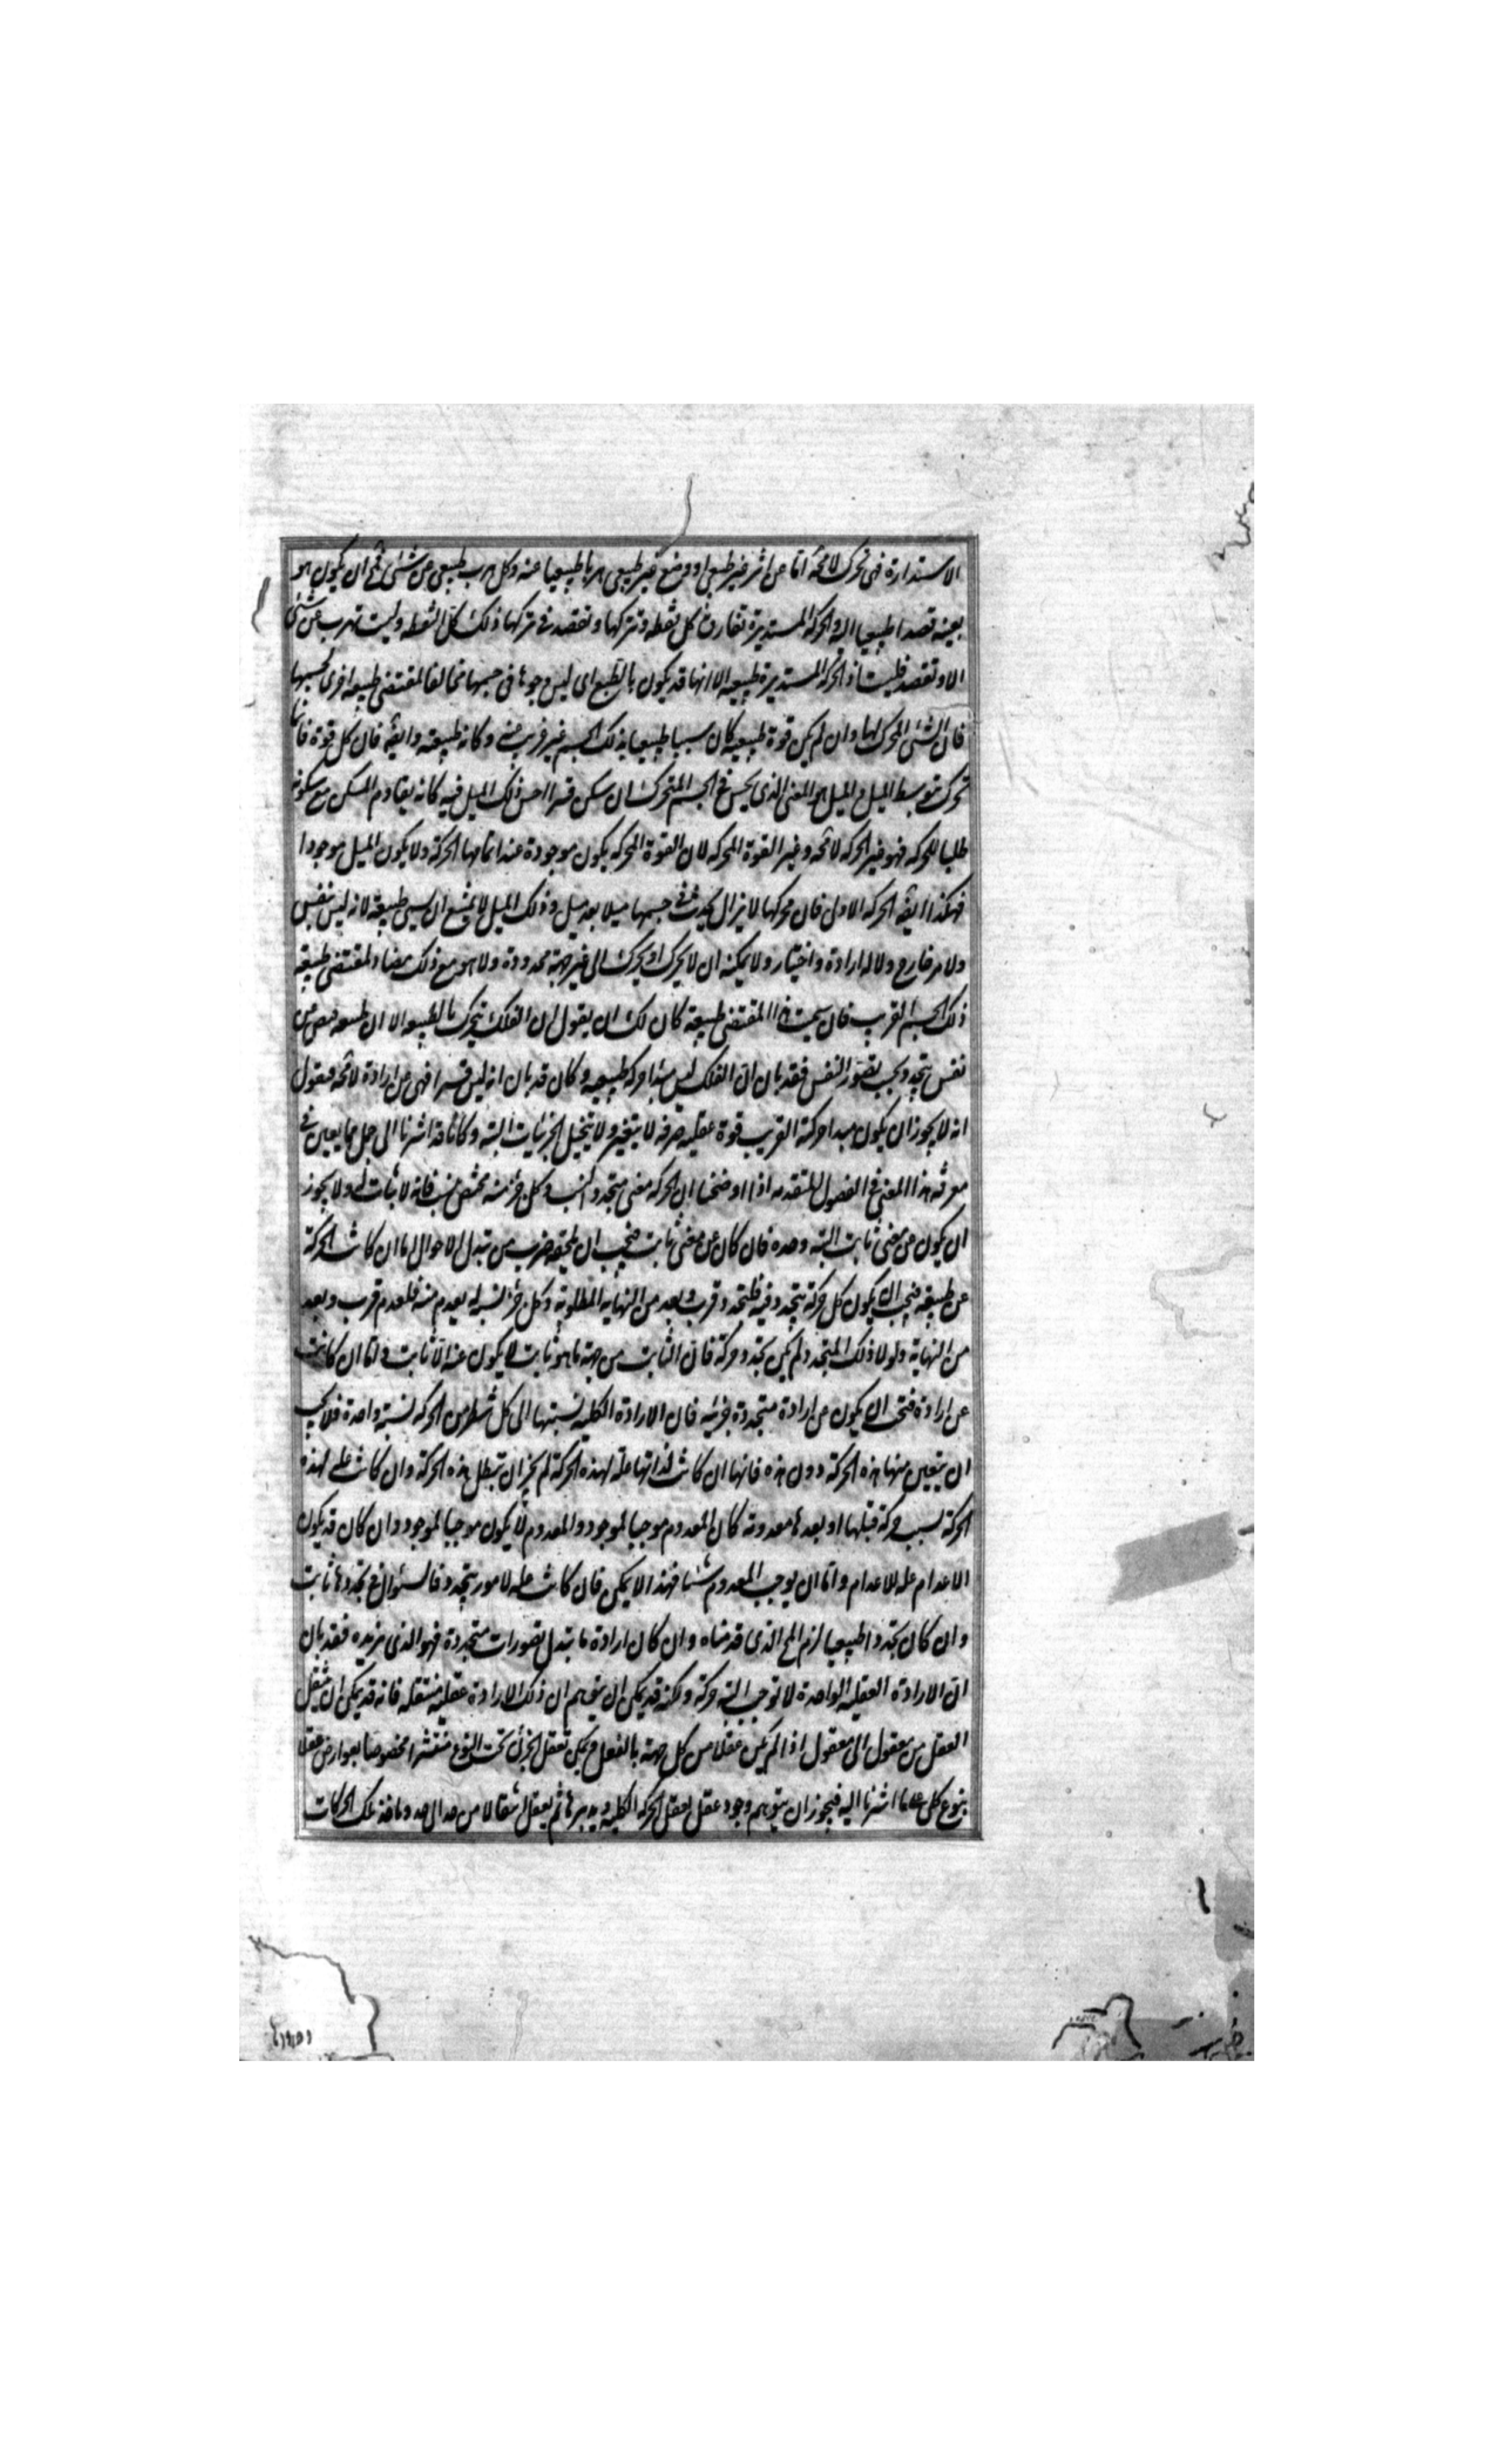 الاستدارة فهى تحرك لامحة اما عن اثر غير طبيعى او وضع غير طبيعى هربا طبيعيا عنه وكل هرب طبيعى عن شئ فمح ان يكون هو
بعينه قصدا طبيعيا اليه والحركة المستديرة تفارق كل نقطة وتتركها وتقصد فى تركها ذلك كل النقطة وليست تهرب عن شئ
الا وتقصده فليست اذ الحركة المستديرة طبيعية الا انها قد يكون بالطبع اى ليس وجودها فى جسمها مخالفا لمقتضى طبيعة اخرى لجسمها
فان الشئ المحرك لها وان لم يكن قوة طبيعية كان سببا طبيعيا لذلك الجسم غير غريب عنه وكانه طبيعته وايضه فان كل قوة فانما
تحرك بتوسط الميل والميل هو المعنى الذى يحس فى الجسم المتحرك ان سكن قسرا احس ذلك الميل فيه كانه يقاوم المسكن مع سكونه
طلبا للحركة فهو غير الحركة لامحة وغير القوة المحركة لان القوة المحركة يكون موجودة عند اتمامها الحركة ولا يكون الميل موجودا
فهكذا ايضه الحركة الاولى فان محركها لا يزال يحدث فى جسمها ميلا بعد ميل وذلك الميل لا يمتنع ان يسمى طبيعة لانه ليس بنفس
ولا من خارج ولا له ارادة واختيار ولا يمكنه ان لا يحرك او يحرك الى غير جهة محدودة ولا هو مع ذلك بمضاد لمقتضى طبيعة
ذلك الجسم القريب فان سميت هذا المقتضى طبيعة كان لك ان يقول ان الفلك يتحرك بالطبيعة الا ان طبيعته فيض عن
نفس يتجدد بحسب تصور النفس فقد بان ان الفلك ليس مبدا حركته طبيعية وكان قد بان انه ليس قسرا فهى عن ارادة لامحة فنقول
انه لا يجوز ان يكون مبدا حركته القريب قوة عقلية صرفة لا يتغير ولا يتخيل الجزئيات البتة وكانا قد اشرنا الى جمل مما يعين فى
معرفة هذا المعنى فى الفصول المتقدمة اذا اوضحنا ان الحركة معنى متجدد النسب وكل جزء منه مختص بنسب فانه لا ثبات له ولا يجوز
ان يكون عن معنى ثابت البتة وحده فان كان عن معنى ثابت فيجب ان يلحقه ضرب من تبدل الاحوال اما ان كانت الحركة
عن طبيعة فيجب ان يكون كل حركة يتجدد فيه فلتجدد قرب وبعد من النهاية المطلوبة وكل جزء نسبة له يعدم منه فلعدم قرب وبعد
من النهاية ولولا ذلك المتجدد لم يكن تجدد حركة فان الثابت من جهة ما هو ثابت لا يكون عنه الا ثابت واما ان كانت
عن ارادة فيجب ان يكون عن ارادة متجددة جزئية فان الارادة الكلية نسبتها الى كل شطر من الحركة نسبة واحدة فلا يجب
ان يتعين منها هذه الحركة دون هذه فانها ان كانت لذاتها علة لهذه الحركة لم يجز ان تبطل هذه الحركة وان كانت علة لهذه
الحركة بسبب حركة قبلها او بعدها معدومة كان المعدوم موجبا لموجود والمعدوم لا يكون موجبا لموجود وان كان قد يكون
الاعدام علة للاعدام واما ان يوجب المعدوم شيئا فهذا لا يمكن فان كانت علة لامور يتجدد فالسؤال فى تجددها ثابت
وان كان تجددا طبيعيا لزم المح الذى قدمناه وان كان ارادة ما تبدل تصورات متجددة فهو الذى نريده فقد بان
ان الارادة العقلية الواحدة لا توجب البتة حركة ولكنه قد يمكن ان يتوهم ان ذلك لارادة عقلية منتقلة فانه قد يمكن ان ينتقل
العقل من معقول الى معقول اذا لم يكن عقلا من كل جهة بالفعل ويمكن تعقل الجزئى تحت النوع منتشرا مخصوصا بعوارض عقلا
بنوع كلى على ما اشرنا اليه فيجوز ان يتوهم وجود عقل يعقل الحركة الكلية ويدبرها ثم يعقل انتقالا من حد الى حد وياخذ تلك الحركات